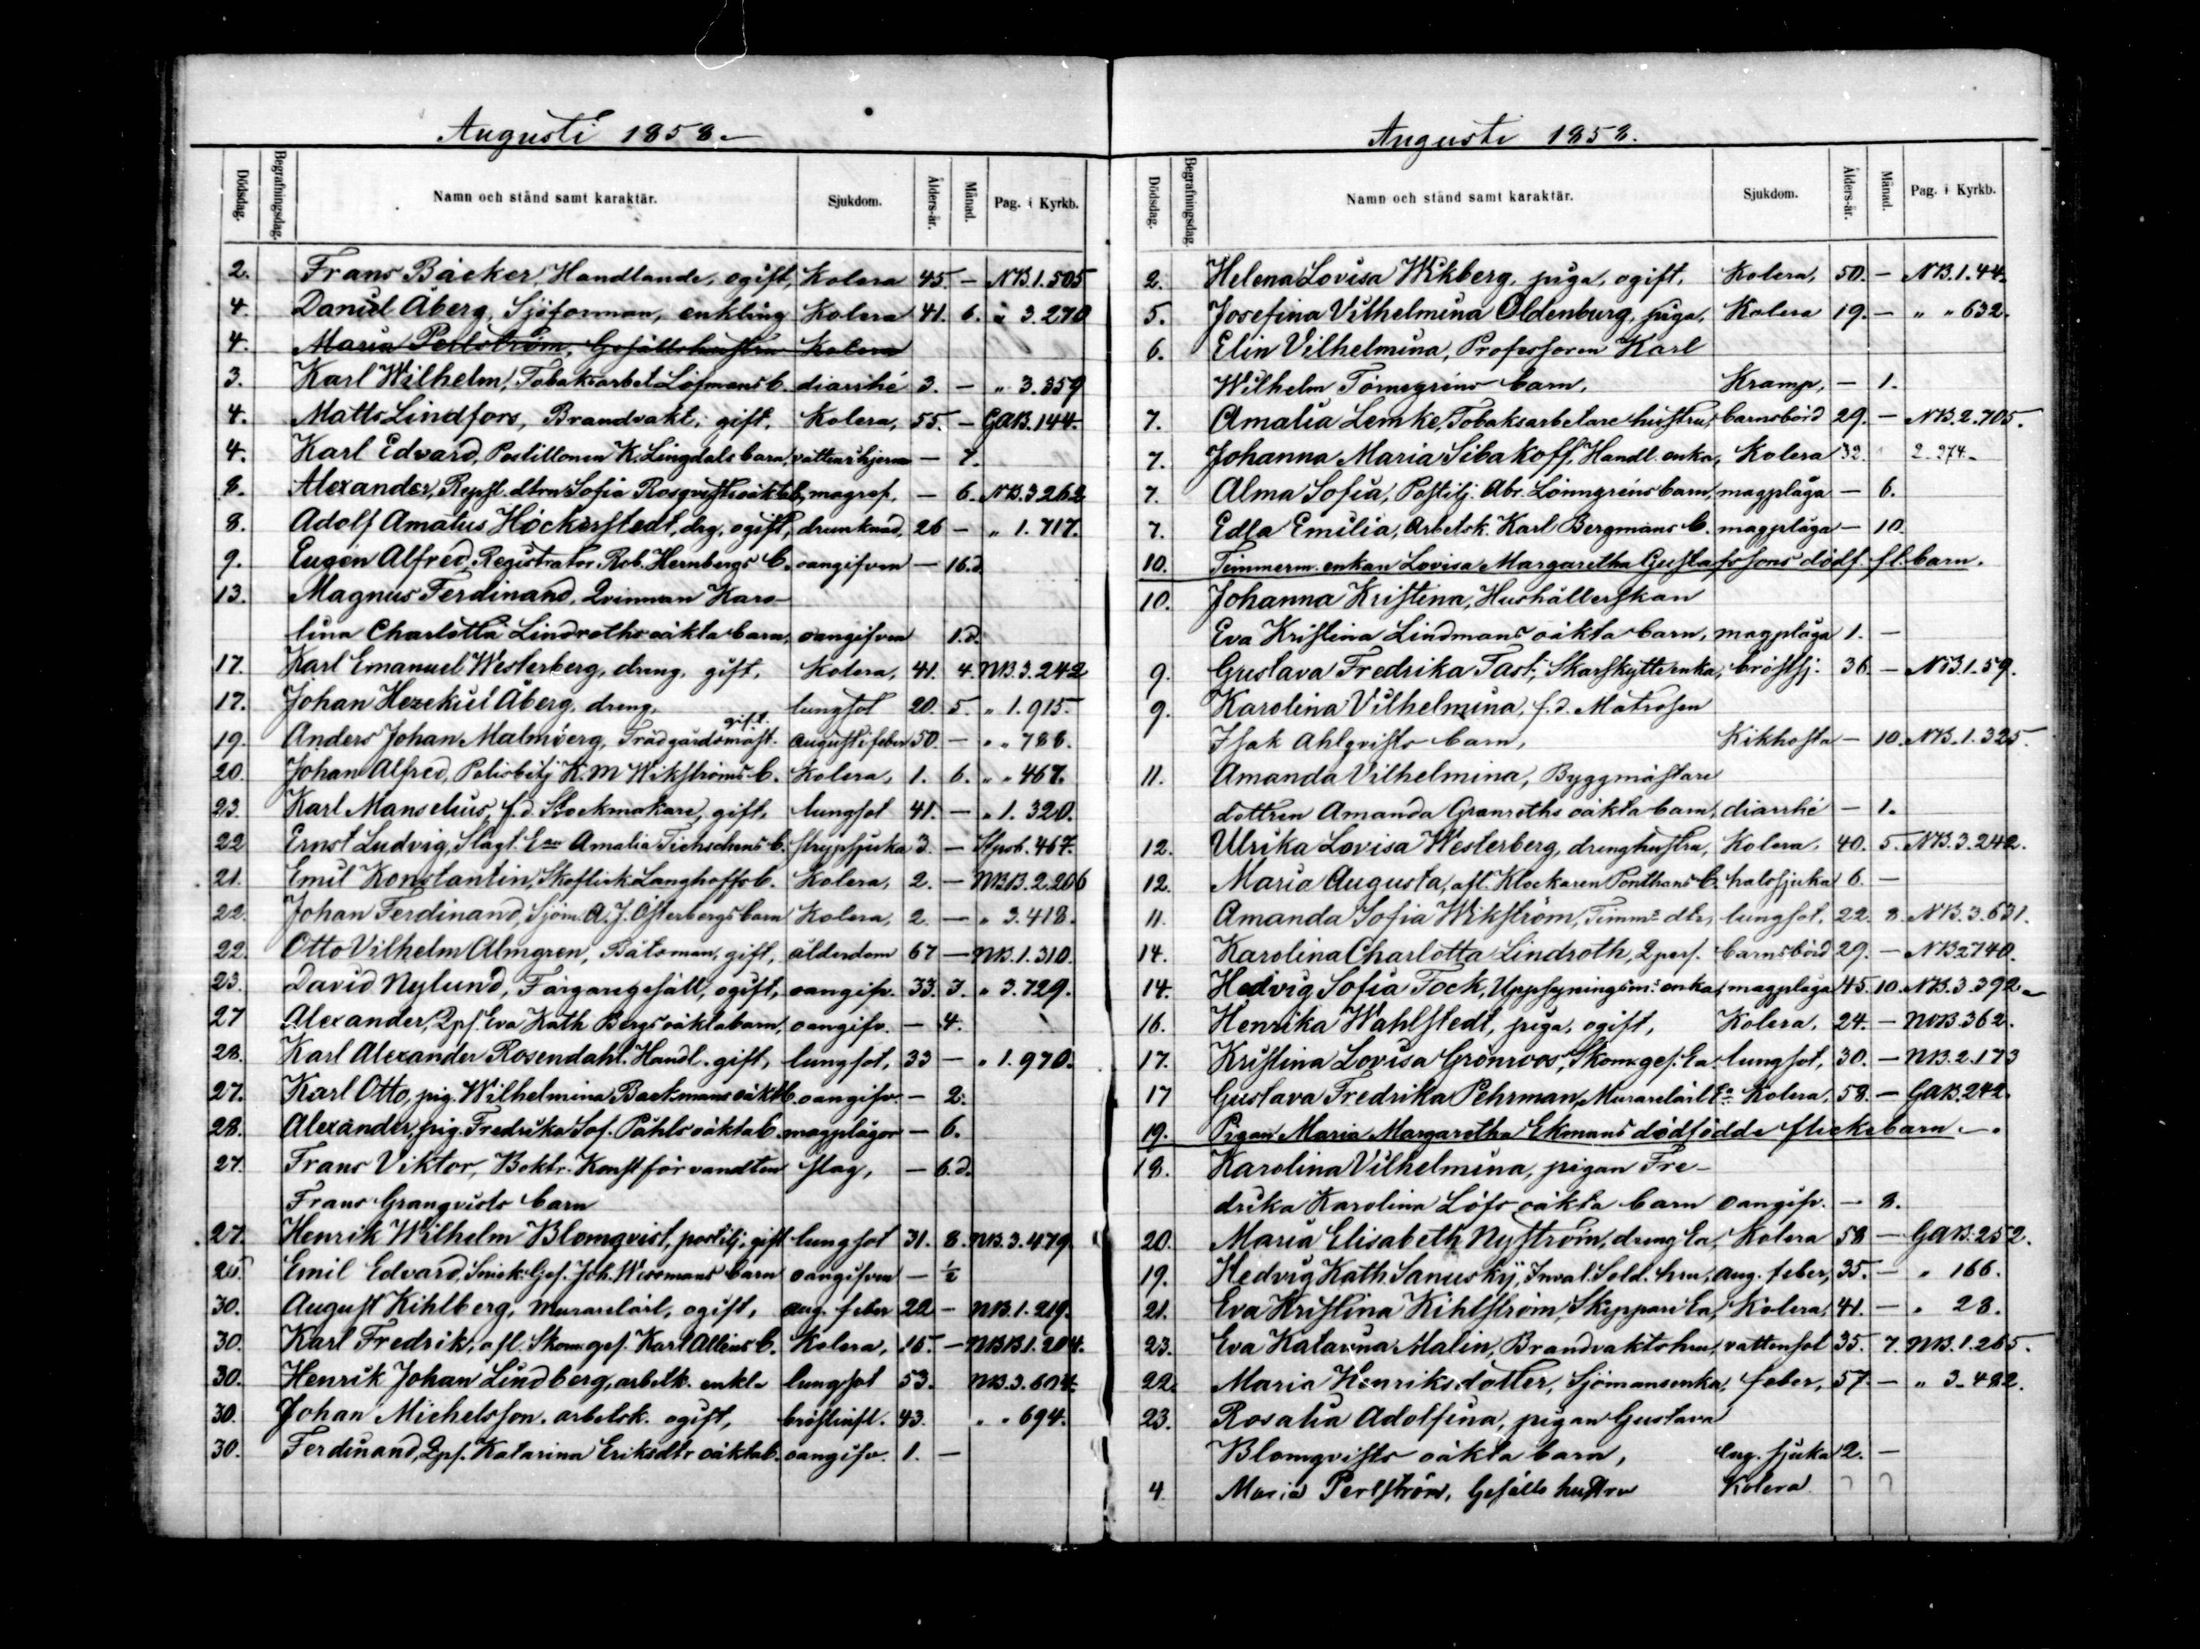 Augusti 1853.
Dödsdag. Begrafningsdag. Namn och stånd samt karaktär. Sjukdom. Ålders-år. Månad. Pag. i Kyrkb.
2. Frans Bäcker, Handlande, ogift, Kolera 45 — NB.1.505
4. Daniel Åberg, Sjöforman, enkling Kolera 41. 6. " 3.270
4. Maria Perlström, Gesällshustru Kolera
3. Karl Wilhelm, Tobaksarbet. Löfmans b. diarrhé 3. — " 3.359
4. Matts Lindfors, Brandvakt, gift, Kolera, 55. — GAB.144.
4. Karl Edvard, Postillonen K. Lingdals barn, vatten i hjernan — 7.
8. Alexander, Repsl. dtrn Sofia Rosqvists oäkta b. magref. — 6. NB.3.262
8. Adolf Amatus Höckerstedt, drg, ogift, drunknad, 26 — " 1.717.
9. Eugen Alfred, Registrator Rob. Hernbergs b. oangifven — 16.d.
13. Magnus Ferdinand, Qvinnan Karo-
lina Charlotta Lindroths oäkta barn, oangifven 1.d.
17. Karl Emanuel Westerberg, dreng, gift, Kolera, 41. 4. NB.3.242
17. Johan Hezekiel Åberg, dreng, lungsot 20. 5. " 1.915.
19. Anders Johan Malmberg, Trädgårdsmäst. gift. Augustifeber 50. — " " 788.
20. Johan Alfred, Polisbetj K. M Wikströms b. Kolera, 1. 6. " " 467.
23. Karl Manselius, f.d. Stockmakare, gift, lungsot 41. — " 1.320.
22 Ernst Ludvig, Slagt. Enn Amalia Tichschens b. strypsjuka 3. — 467.
21. Emil Konstantin, Langhoffs b. Kolera, 2. — NBB.2.206
22. Johan Ferdinand, Sjöm. A. J. Österbergs barn Kolera, 2. — " 3.418.
22. Otto Vilhelm Almgren, Båtsman, gift, ålderdom 67 — NB.1.310.
23. David Nylund, Färgaregesäll, ogift, oangifv. 33. 3. " 3.729.
27 Alexander, Qps. Eva Kath Bergs oäkta barn, oangifv. — 4.
28. Karl Alexander Rosendahl, Handl. gift, lungsot, 33 — " 1.970.
27. Karl Otto, pig. Wilhelmina Backmans oäkt b. oangifv. — 2.
28. Alexander, pig. Fredrika Sof. Påhls oäkta b. magplågor — 6.
27. Frans Viktor, Boktr. Konstförvandten slag, — 6.d.
Frans Granqvists barn
27. Henrik Wilhelm Blomqvist, postilj. gift lungsot 31. 8. NB.3.479.
Emil Edvard, Snick. Ges. Joh. Wissmans barn oangifven — ½
30. August Kihlberg, murarelärl, ogift, aug. feber 22 — NB.1.219.
30. Karl Fredrik, afl. Skom.ges. Karl Alléns b. Kolera, 15. — NBB.1.204.
30. Henrik Johan Lindberg, arbetk. enkl. lungsot 53. NB.3.604.
30. Johan Michelsson, arbetsk. ogift, bröstinfl. 43. " " 694.
30. Ferdinand, Qps. Katarina Eriksdtr oäkta b. oangifv. 1. —
Augusti 1853.
Dödsdag. Begrafningsdag. Namn och stånd samt karaktär. Sjukdom. Ålders-år. Månad. Pag. i Kyrkb.
2. Helena Lovisa Wikberg, piga, ogift, Kolera, 50. — NB.1.44.
5. Josefina Vilhelmina Oldenburg, piga, Kolera 19. — " " 632.
6. Elin Vilhelmina, Professoren Karl
Wilhelm Törnegréns barn, Kramp, — 1.
7. Amalia Lemke, Tobaksarbetare hustru, barnsbörd 29. — NB.2.705.
7. Johanna Maria Sibakoff, Handl. enka, Kolera 32. 2.274.
7. Alma Sofia, Postilj. Abr. Lönngréns barn, magplåga — 6.
7. Edla Emilia, Arbetsk. Karl Bergmans b. magplåga — 10.
10. Timmerm. enkan Lovisa Margaretha Gustafssons dödf. fl. barn.
10. Johanna Kristina, Hushållerskan
Eva Kristina Lindmans oäkta barn, magplåga 1. —
9. Gustava Fredrika Fast, Skarpskytt enka, bröstsj: 36. — NB.1.59.
9. Karolina Vilhelmina, f.d. Matrosen
Isak Ahlqvists barn, Kikhosta — 10. NB.1.325.
11. Amanda Vilhelmina, Byggmästare
dottren Amanda Granroths oäkta barn, diarrhé — 1.
12. Ulrika Lovisa Westerberg, drenghustru, Kolera, 40. 5. NB.3.242.
12. Maria Augusta, afl. Klockaren Ponthans b. halssjuka 6. —
11. Amanda Sofia Wikström, Timm: dtr, lungsot, 22. 8. NB.3.631.
14. Karolina Charlotta Lindroth, Qpers. barnsbörd 29. — NB2740.
14. Hedvig Sofia Tock, Uppsyningsm: enka, magplåga 45. 10. NB.3.392.
16. Henrika Wahlstedt, piga, ogift, Kolera, 24. — 362.
17. Kristina Lovisa Grönroos, Skom.ges. Ea lungsot, 30. — NB.2.173
17 Gustava Fredrika Pehrman, Murarelärl. Ea Kolera, 58. — GAB.242.
19. Pigan Maria Margaretha Ekmans dödfödde flickebarn.
18. Karolina Vilhelmina, pigan Fre-
drika Karolina Löfs oäkta barn oangifv. — 8.
20. Maria Elisabeth Nyström, dreng Ea, Kolera 58 — GAB.252.
19. Hedvig Kath Sanuskij, Inval. Sold. hru, aug. feber, 35. — " 166.
21. Eva Kristina Kihlström, Skeppare Ea, Kolera, 41. — " 28.
23. Eva Katarina Malin, Brandvaktshru, vattensot 35. 7. NB.1.265.
22. Maria Henriksdotter, Sjömansenka, feber, 57. — " 3.422.
23. Rosalia Adolfina, pigan Gustava
Blomqvists oäkta barn, eng. sjuka 2. —
4 Maria Perlström, Gesälls hustru Kolera ? ?